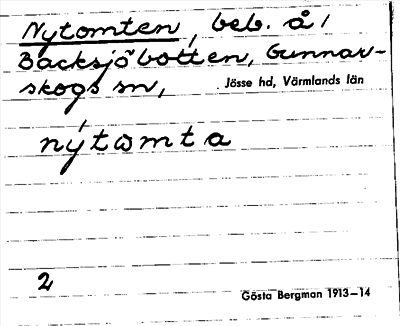 Nytomten, beb. å 1
Backsjöbotten, Gunnar-
skogs sn,
Jösse hd, Värmlands län
nýtωmta
2
Gösta Bergman 1913–14